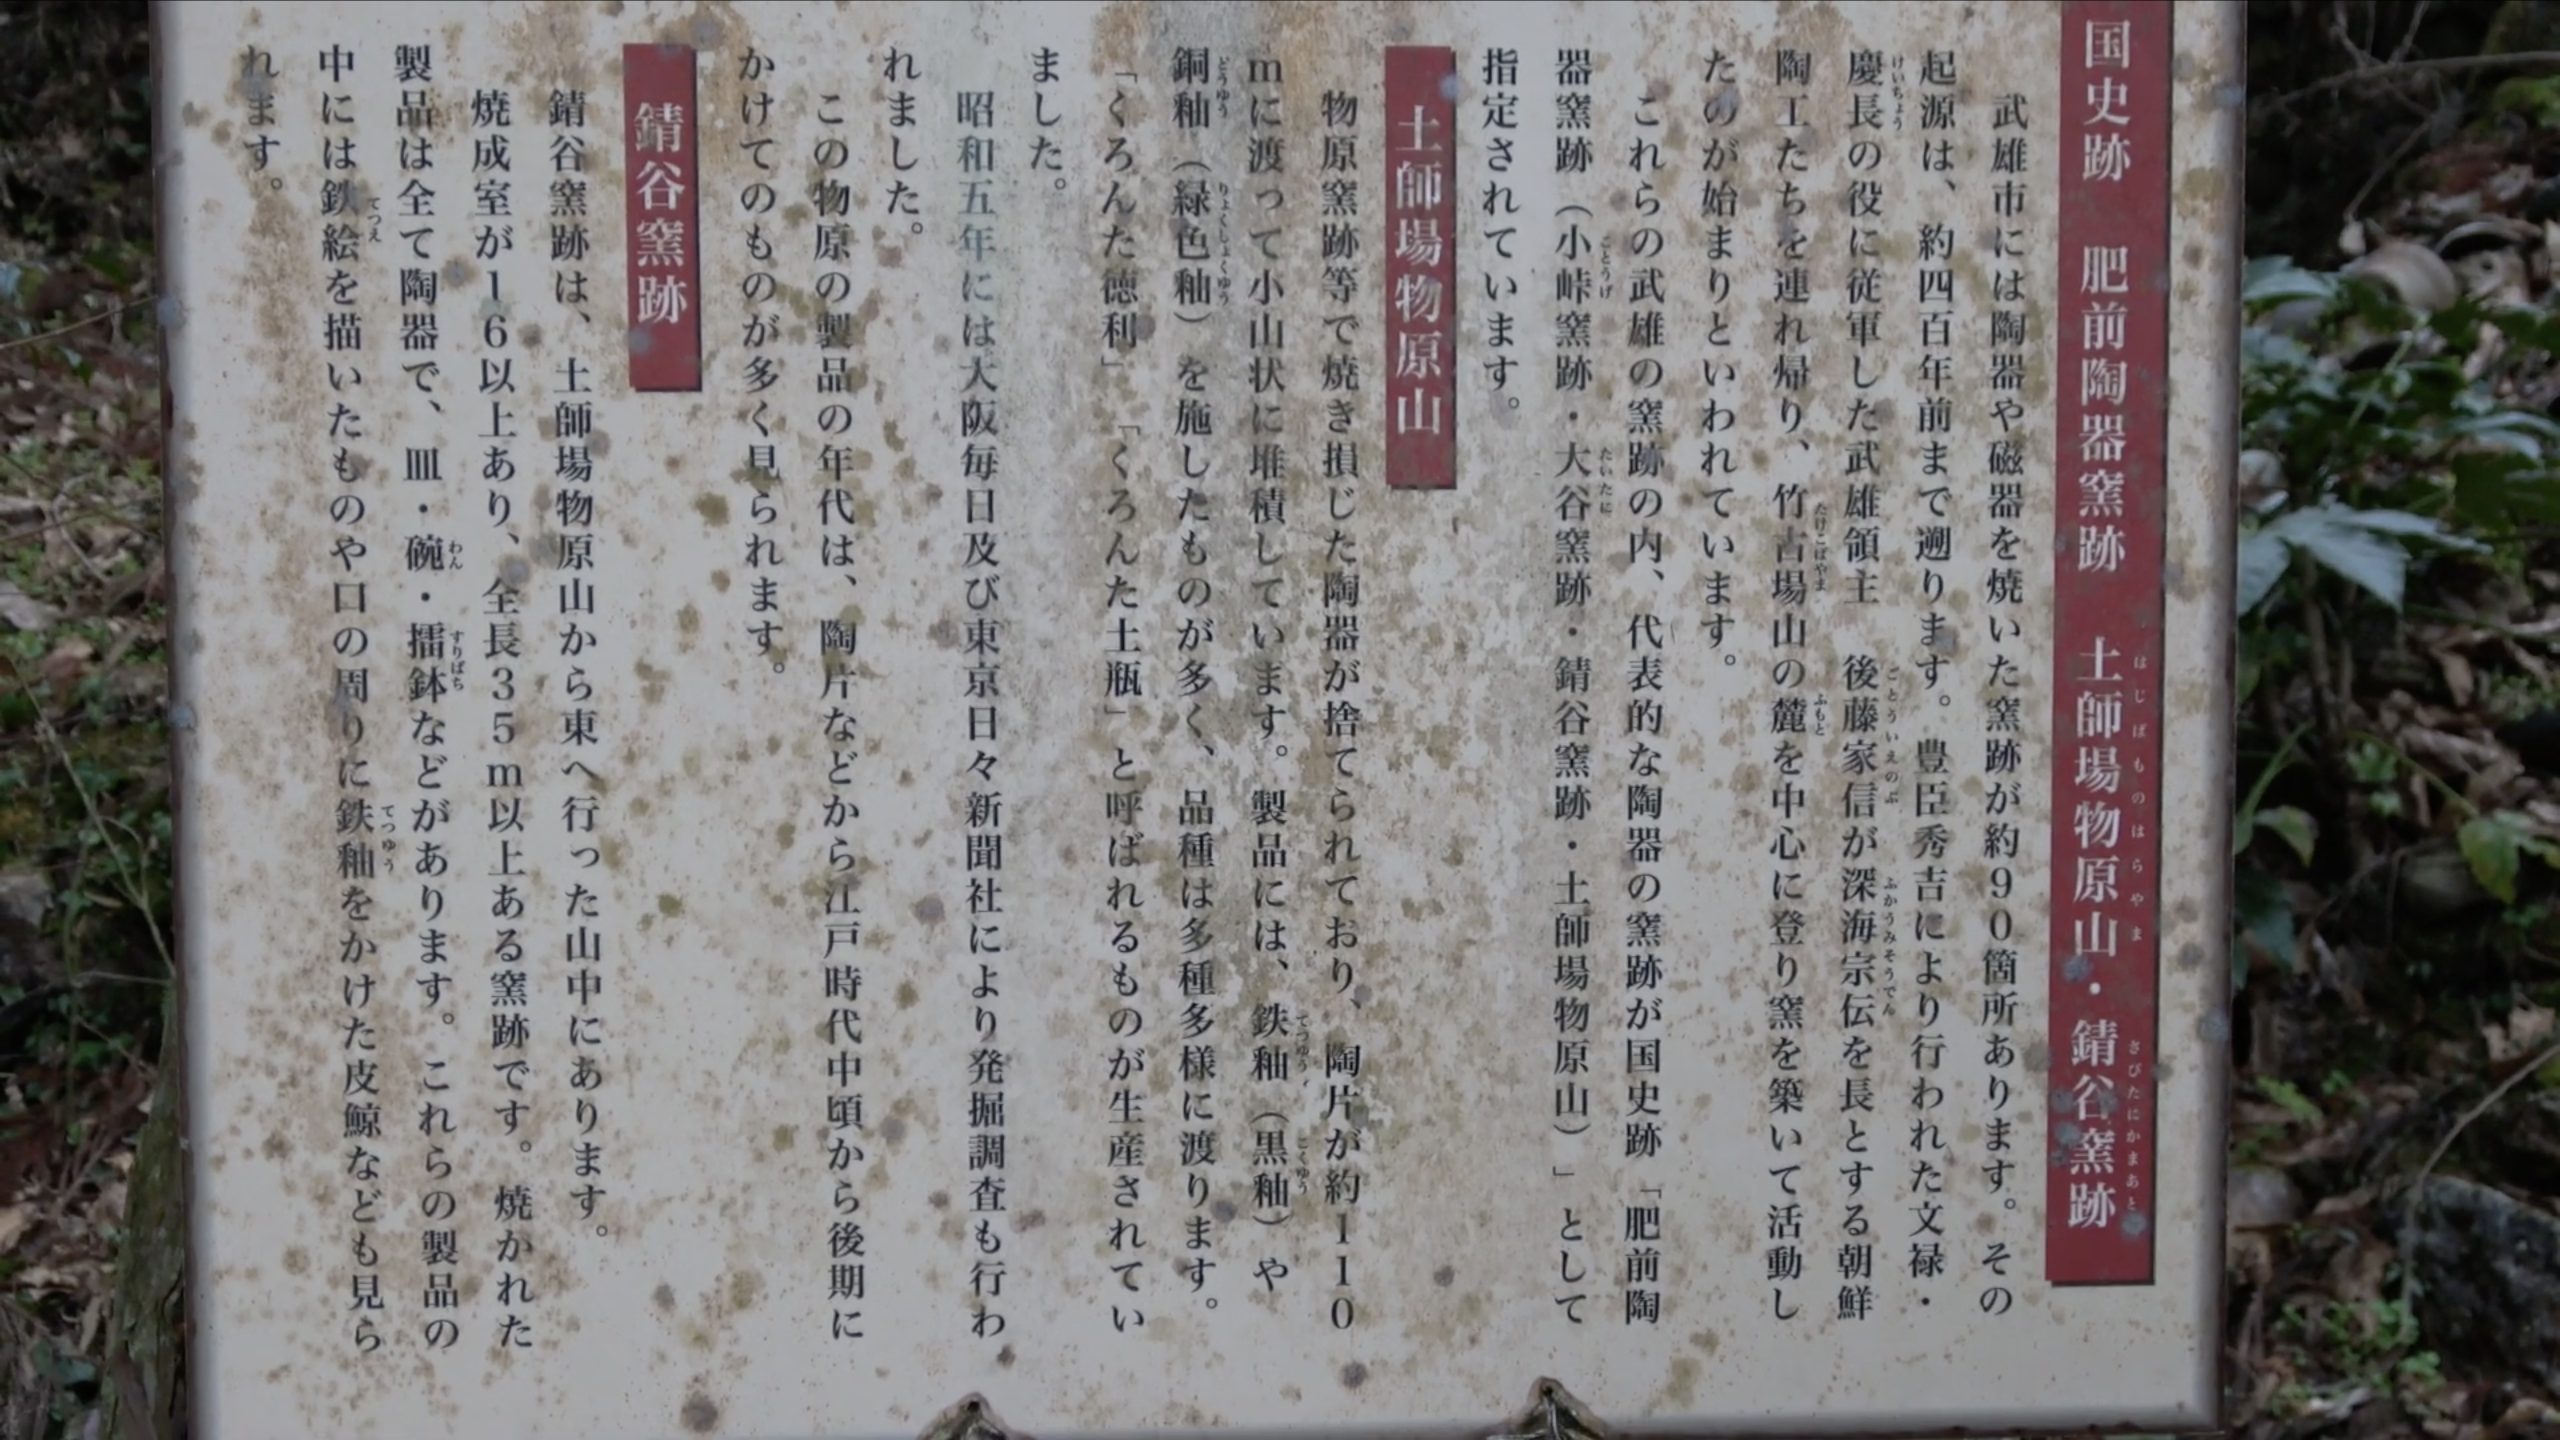 国史跡　肥前陶器窯跡　土師場物原山・錆谷窯跡
はじばものはらやま
さびたにかまあと
武雄市には陶器や磁器を焼いた窯跡が約９０箇所あります。その
起源は、約四百年前まで遡ります。豊臣秀吉により行われた文禄・
慶長の役に従軍した武雄領主　後藤家信が深海宗伝を長とする朝鮮
けいちょう
ごとういえのぶ
ふかうみそうでん
陶工たちを連れ帰り、竹古場山の麓を中心に登り窯を築いて活動し
たけこばやま
ふもと
たのが始まりといわれています。
これらの武雄の窯跡の内、代表的な陶器の窯跡が国史跡「肥前陶
器窯跡（小峠窯跡・大谷窯跡・錆谷窯跡・土師場物原山）」として
ことうげ
たいたに
指定されています。
土師場物原山
物原窯跡等で焼き損じた陶器が捨てられており、陶片が約１１０
ｍに渡って小山状に堆積しています。製品には、鉄釉（黒釉）や
てつゆう
こくゆう
銅釉（緑色釉）を施したものが多く、品種は多種多様に渡ります。
どうゆう
りょくしょくゆう
「くろんた徳利」「くろんた土瓶」と呼ばれるものが生産されてい
ました。
昭和五年には大阪毎日及び東京日々新聞社により発掘調査も行わ
れました。
この物原の製品の年代は、陶片などから江戸時代中頃から後期に
かけてのものが多く見られます。
錆谷窯跡
錆谷窯跡は、土師場物原山から東へ行った山中にあります。
焼成室が１６以上あり、全長３５ｍ以上ある窯跡です。焼かれた
製品は全て陶器で、皿・碗・擂鉢などがあります。これらの製品の
わん
すりばち
中には鉄絵を描いたものや口の周りに鉄釉をかけた皮鯨なども見ら
てつえ
てつゆう
れます。